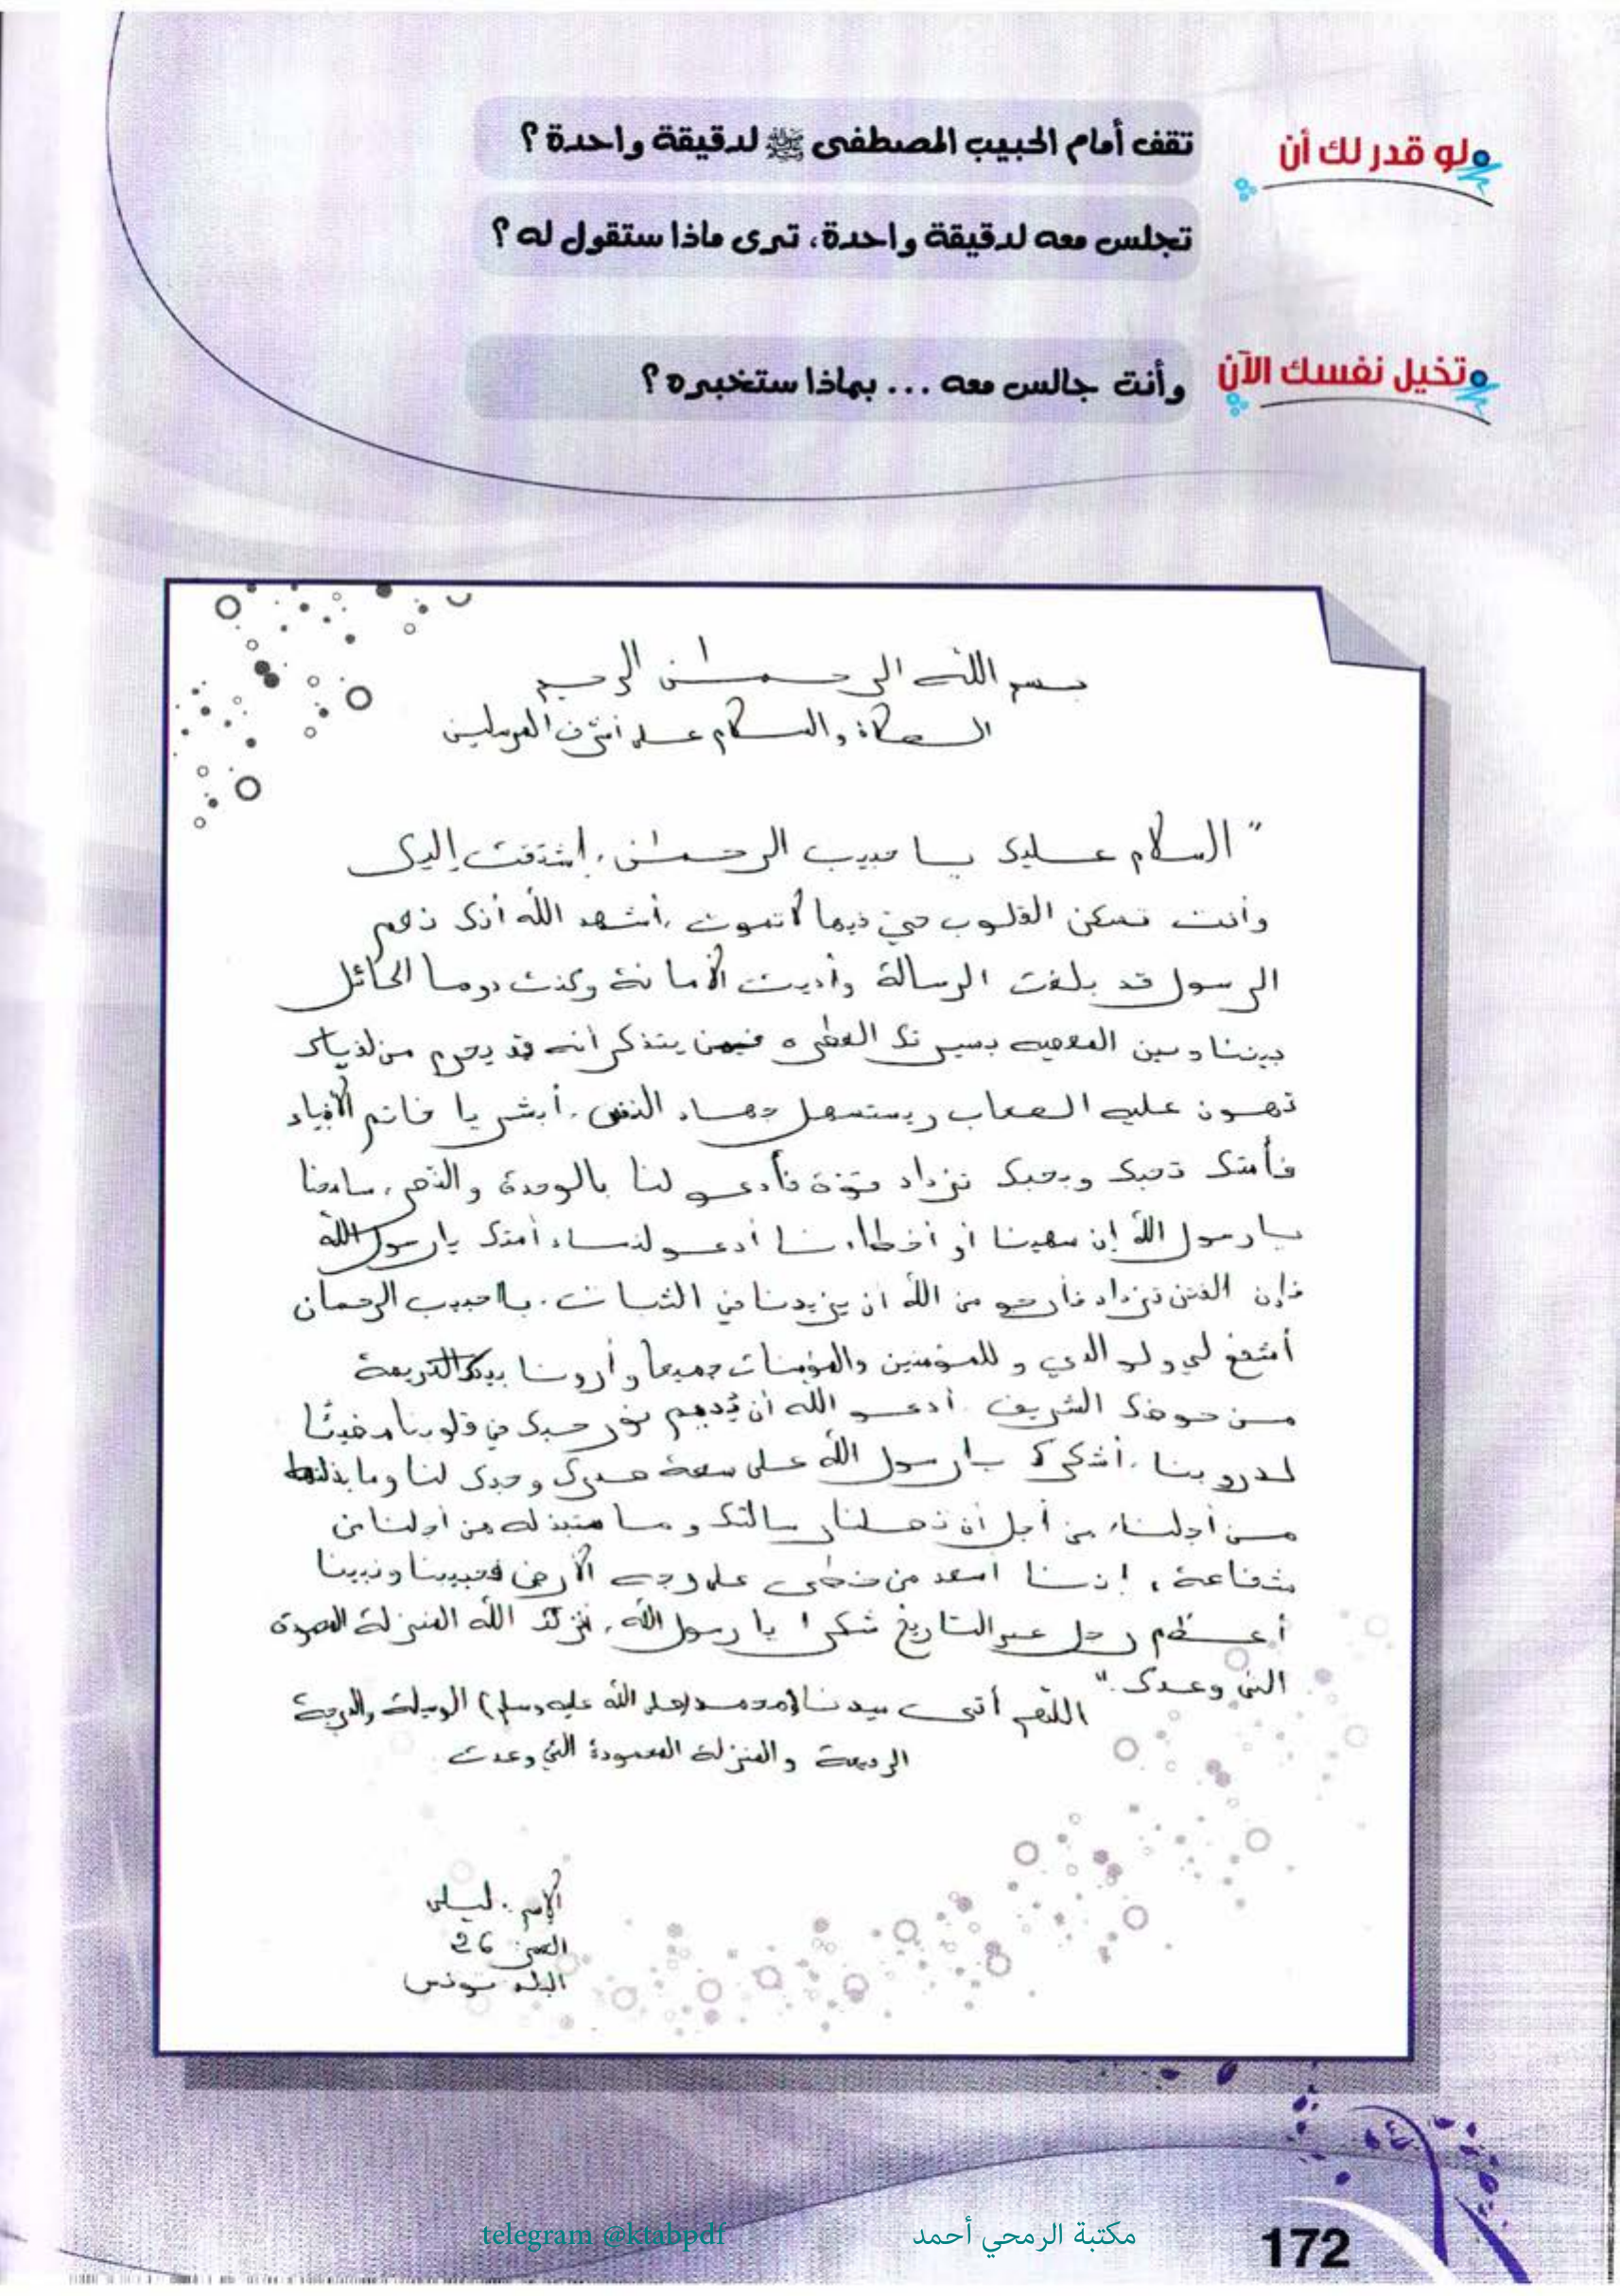 ولو قدر لك أن
تقف أمام الحبيب المصطفى ﷺ لدقيقة واحدة ؟
تجلس معه لدقيقة واحدة، ترى ماذا ستقول له ؟
وتخيل نفسك الآن
وأنت جالس معه ... بماذا ستخبره ؟
بسم الله الرحمان الرحيم
الصلاة والسلام على أشرف المرسلين
" السلام عليك يا حبيب الرحمان، إشتقت إليك
وأنت تسكن القلوب حيّ فيها لا تموت، أشهد الله أنك نعم
الرسول قد بلغت الرسالة وأديت الأمانة وكنت دوما الحائل
بيننا وبين المعصية بسيرتك العطرة فمن يتذكر أنه قد يحرم من لقياك
تهون عليه الصعاب ويستسهل جهاد النفس. أبشر يا خاتم الأنبياء
فأمتك تحبك وبحبك تزداد قوة فأدعو لنا بالوحدة والنصر، سامحنا
يا رسول الله إن سهينا أو أخطأنا أدعو لنساء أمتك يا رسول الله
فإن الفتن تزداد فأرجو من الله أن يزيدنا في الثبات. يا حبيب الرحمان
أشفع لي ولوالدي وللمؤمنين والمؤمنات جميعا وأرونا بيدك الكريمة
من حوضك الشريف. أدعو الله أن يُديم نور حبك في قلوبنا مضيئا
لدروبنا. أشكرك يا رسول الله على سعة صبرك وحبك لنا وما بذلته
من أجلنا، من أجل أن تصلنا رسالتك وما ستبذله من أجلنا من
شفاعة، إننا أسعد من خطى على وجه الأرض فحبيبنا ونبينا
أعظم رجل عبر التاريخ شكرا يا رسول الله، الله المنزلة
التي وعدك."
اللهم أتي سيدنا محمد (صلى الله عليه وسلم) الوسيلة والدرجة
الرفيعة والمنزلة المحمودة التي وعدت
الإسم: ليلى
العمر: 26
البلد: تونس
telegram @ktabpdf
مكتبة الرمحي أحمد
172